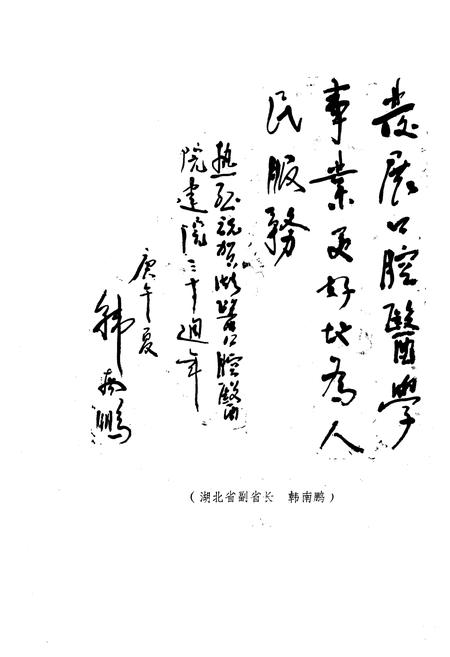 發展口腔醫學
事業更好地為人
民服務
热烈祝贺湖醫口腔醫
院建院三十週年
庚午夏
韩南鹏
(湖北省副省长 韩南鹏)